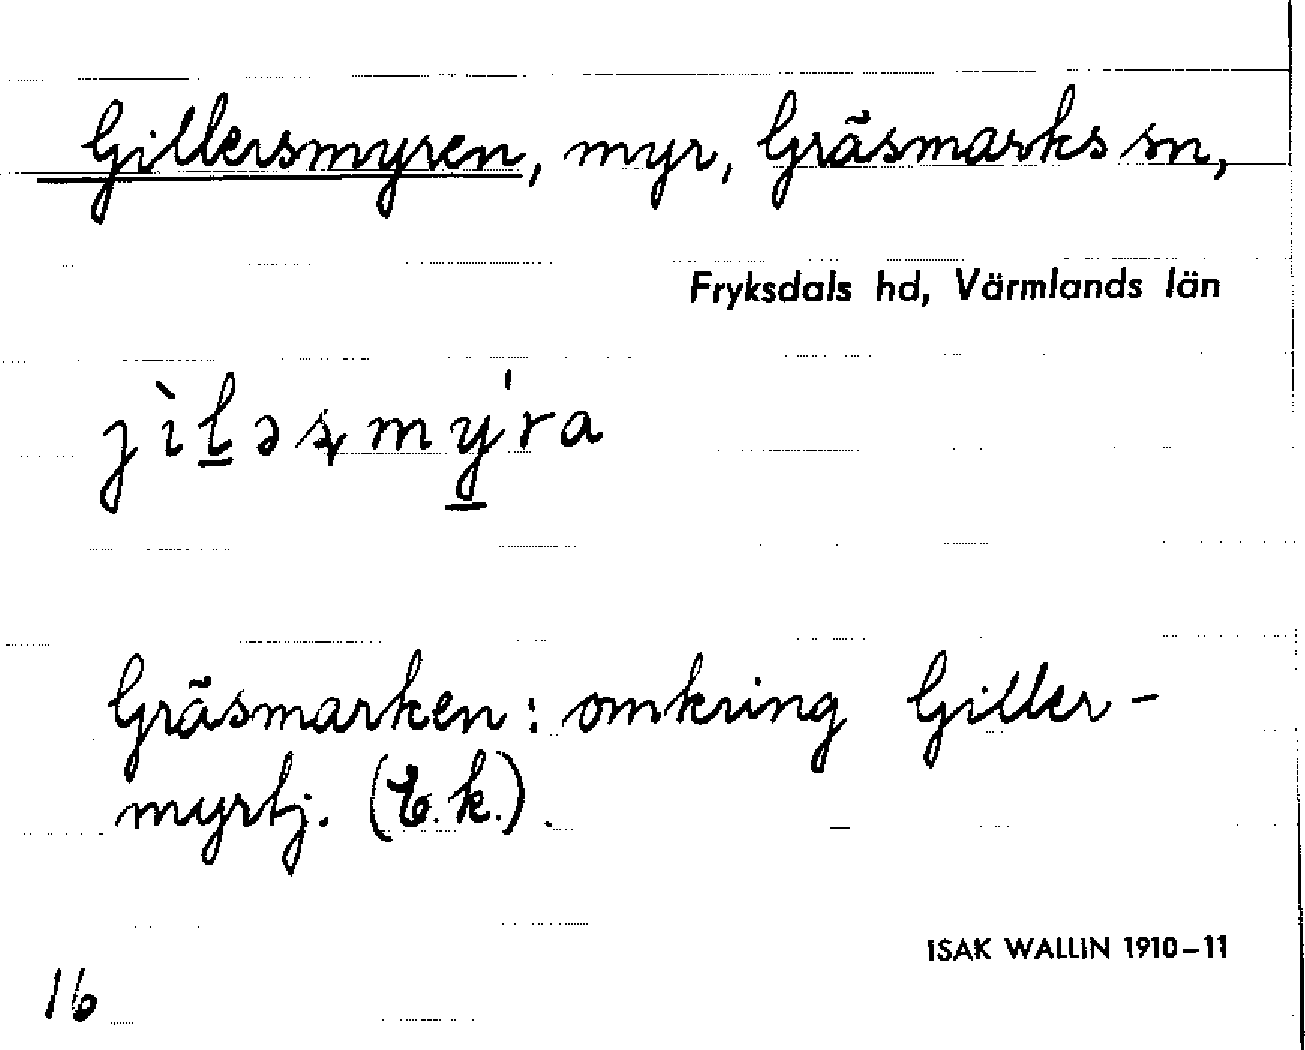 Gillersmyren, myr, Gräsmarks sn,
Fryksdals hd, Värmlands län
jìləʂmy̍ra
Gräsmarken: omkring Giller-
myrtj. (E.k.).
ISAK WALLIN 1910–11
16